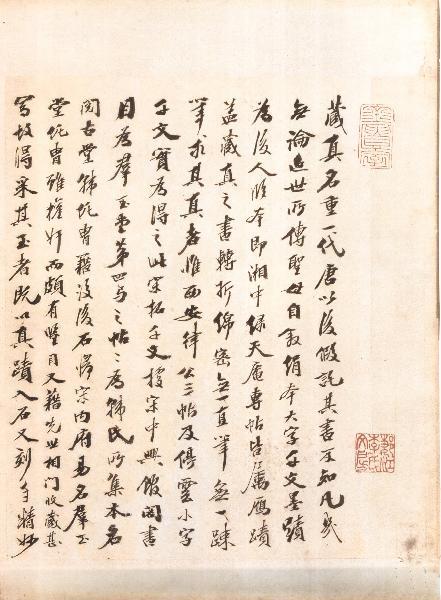 藏真名重一代唐以後假託其書不知凡幾
無論近世所傳聖母自叙絹本大字千文墨蹟
為後人臨本即湘中綠天庵專帖皆屬贋蹟
蓋藏真之書轉折綿密無一直筆無一疎
筆求其真者惟西安律公三帖及停雲小字
千文實為得之此宋拓千文據宋中興館閣書
目為羣玉堂第四卷之帖〻為韓氏所集本名
閱古堂韓侂胄籍沒後石歸宋內府易名羣玉
堂侂胄雖權奸而頗有鑒目又藉先世相門收藏甚
富故得采其玉者既以真蹟入石又刻手精妙